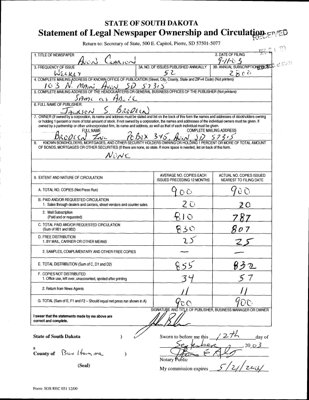 STATE OF SOUTH DAKOTA
Statement of Legal Newspaper Ownership and Circulation
RECEIVED
Return to: Secretary of State, 500 E. Capitol, Pierre, SD 57501-5077
1. TITLE OF NEWSPAPER
2. DATE OF FILING
Avon Clarion
3. FREQUENCY OF ISSUE
3A. NO. OF ISSUES PUBLISHED ANNUALLY
3B. ANNUAL SUBSCRIPTION
Weekly
52
4. COMPLETE MAILING ADDRESS OF KNOWN OFFICE OF PUBLICATION (Street, City, County, State and ZIP+4 Code) (Not printers)
103 N. Main Avon SD 57315
5. COMPLETE MAILING ADDRESS OF THE HEADQUARTERS OR GENERAL BUSINESS OFFICES OF THE PUBLISHER (Not printers)
Same as Above
6. FULL NAME OF PUBLISHER:
Jackson S Brodeen
7. OWNER (If owned by a corporation, its name and address must be stated and list on the back of this form the names and addresses of stockholders owning
or holding 1 percent or more of total amount of stock. If not owned by a corporation, the names and addresses of the individual owners must be given. If
owned by a partnership or other unincorporated firm, its name and address, as well as that of each individual must be given.
FULL NAME
COMPLETE MAILING ADDRESS
Brodeen Inc.
PO Box 345 Avon SD 57315
8. KNOWN BONDHOLDERS, MORTGAGES, AND OTHER SECURITY HOLDERS OWNING OR HOLDING 1 PERCENT OR MORE OF TOTAL AMOUNT
OF BONDS, MORTGAGES OR OTHER SECURITIES (If there are none, so state). If more space is needed, list on back of this form.
None
9. EXTENT AND NATURE OF CIRCULATION
AVERAGE NO. COPIES EACH
ISSUES PRECEDING 12 MONTHS
ACTUAL NO. COPIES ISSUED
NEAREST TO FILING DATE.
A. TOTAL NO. COPIES (Net Press Run)
900
900
B. PAID AND/OR REQUESTED CIRCULATION
1. Sales through dealers and carriers, street vendors and counter sales.
20
20
2. Mail Subscription
(Paid and or requested)
810
787
C. TOTAL PAID AND/OR REQUESTED CIRCULATION
(Sum of 9B1 and 9B2)
830
807
D. FREE DISTRIBUTION
1. BY MAIL, CARRIER OR OTHER MEANS
25
25
2. SAMPLES, COMPLIMENTARY AND OTHER FREE COPIES
E. TOTAL DISTRIBUTION (Sum of C, D1 and D2)
855
832
F. COPIES NOT DISTRIBUTED
1. Office use, left over, unaccounted, spoiled after printing
34
57
2. Return from News Agents
11
11
G. TOTAL (Sum of E, F1 and F2 - Should equal net press run shown in A)
900
900
I swear that the statements made by me above are
correct and complete.
SIGNATURE AND TITLE OF PUBLISHER, BUSINESS MANAGER OR OWNER
State of South Dakota )
Sworn to before me this 12th day of
September 2003
County of Bon Homme )
Notary Public
(Seal)
My commission expires
Form: SOS REC 051 12/00